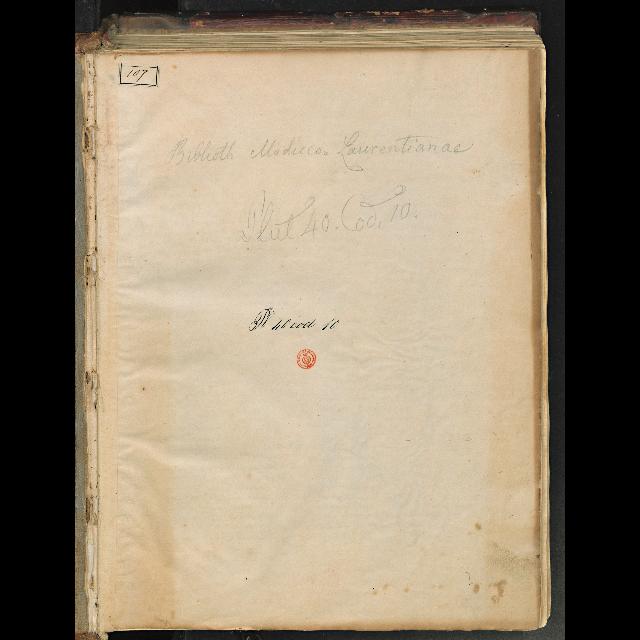 107
Biblioth Mediceo Laurentianae
Plut 40. Cod. 10.
Pl 40 cod 10